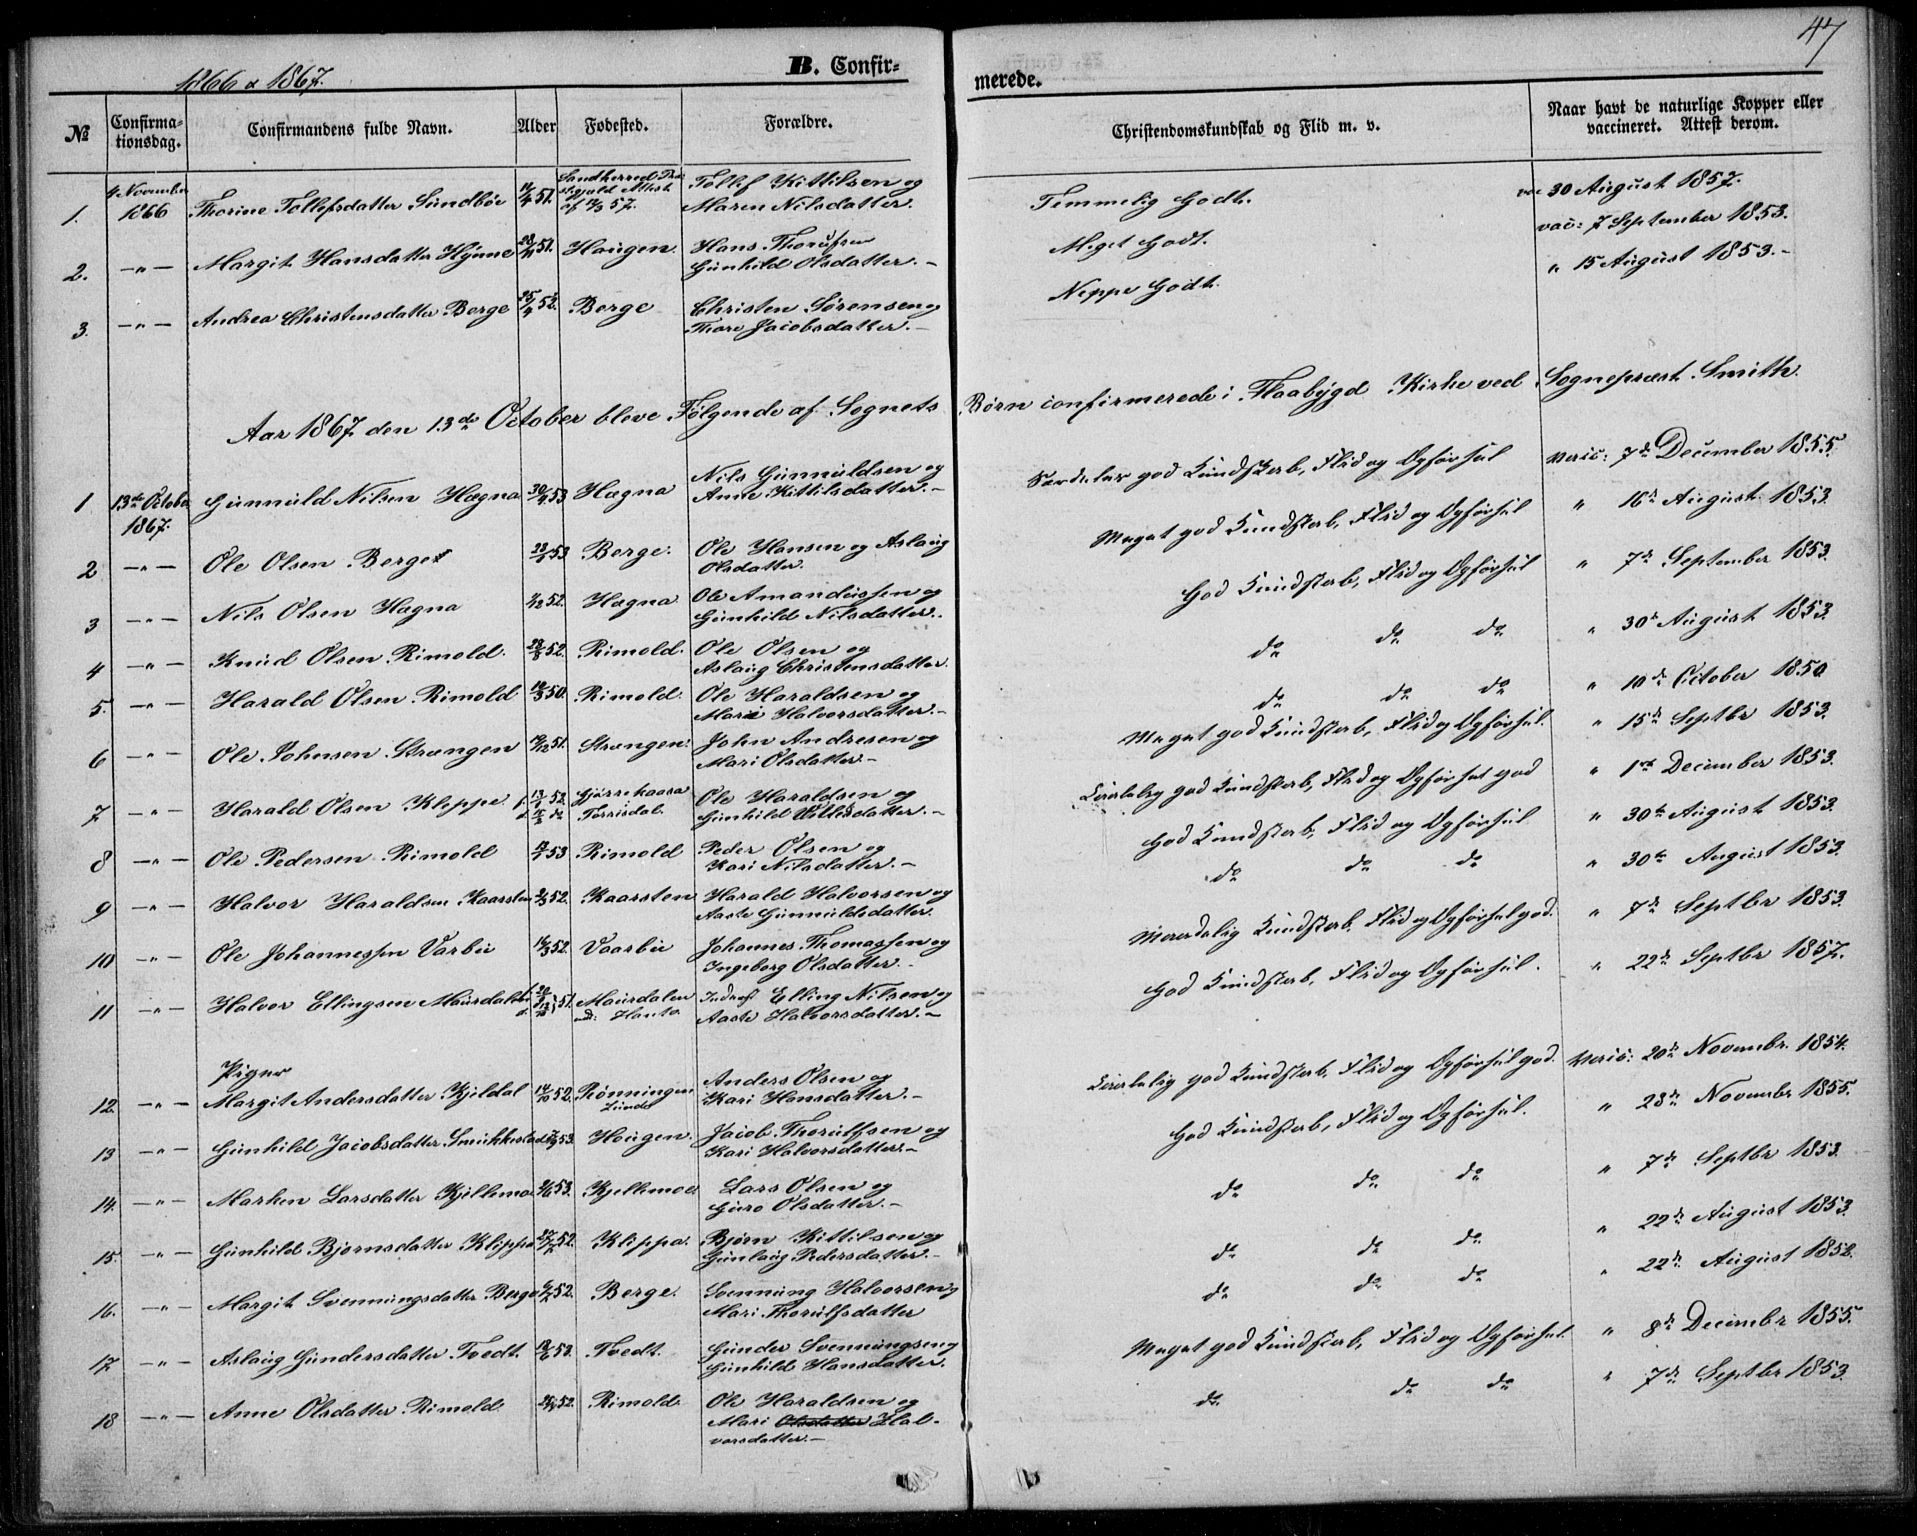 47
1866 & 1867.
B. Confirmerede.
No Confirmationsdag. Confirmandens fulde Navn. Alder Fødested. Forældre. Christendomskundskab og Flid m. v. Naar havt de naturlige Kopper eller vaccineret. Attest derom.
1. 4 November 1866 Thorine Tollefsdatter Sundbøe 51. Tollef Kittilsen og Maren Nilsdatter. Temmelig Godt. vac 30 August 1857.
2. -"- Margit Hansdatter Hynne 51. Haugen. Hans Thorufsen Gunhild Olsdatter. Meget Godt. vac: 7 September 1853.
3. -"- Andrea Christensdatter Berge 25/4 52. Berge Christen Sørensen og Thore Jacobsdatter. Neppe Godt. " 15 August 1853.
Aar 1867 den 13de October bleve Følgende af Sognets Børn confirmerede i Flaabygd Kirke ved Sognepræst Smith.
1 13de Octobe 1867. Gunnuld Nilsen Hægna 53 Hægna Nils Gunnuldsen og Anne Kittilsdatter. Særdeles god Kundskab, Flid og Opførsel Vacc: 7de December 1855.
2 -"- Ole Olsen Berge 53 Berge. Ole Hansen og Aslaug Olsdatter. Meget god Kundskab, Flid og Opførsel " 16de August 1853
3 -"- Nils Olsen Hægna 52. Hægna Ole Amandussen og Gunhild Nilsdatter. God Kundskab, Flid og Opførsel " 7de September 1853.
4 -"- Knud Olsen Rimold. 52. Rimold. Ole Olsen og Aslaug Christensdatter. do do do " 30te August 1853.
5. -"- Harald Olsen Rimold 50. Rimold. Ole Haraldsen og Mari Halvorsdatter. do do do " 10de October 1850
6 -"- Ole Johnsen Strængen 51. Strængen. John Andresen og Mari Olsdatter. Meget god Kundskab, Flid og Opførsel. " 15de Septbr 1853.
7. -"- Harald Olsen Kleppe 52. Gjærrekaasa Torrisdal. Ole Haraldsen og Gunhild datter. god Kundskab, Flid og Opførsel god " 1ste December 1853.
8 -"- Ole Pedersen Rimold 53 Rimold Peder Olsen og Kari Nilsdatter. God Kundskab, Flid og Opførsel " 30te August 1853.
9 -"- Halvor Haraldsen Kaarsten 52. Kaarsten Harald Halvorsen og Aaste Gunnuldsdatter. do do do " 30te August 1853.
10 -"- Ole Johannessen Varbu 52. Vaarbu Johannes Thomassen og Ingeborg Olsdatter. Kundskab, Flid og Opførsel god. " 7de Septbr 1853.
11 -"- Halvor Ellingsen Maurdalen 51. Maurdalen Inderst Elling Nilsen og Aaste Halvorsdatter. God Kundskab, Flid og Opførsel. " 22de Septbr 1857.
Piger
12. -"- Margit Andersdatter Kjeldal 52. Rønningen Lunde Anders Olsen og Kari Hansdatter. god Kundskab, Flid og Opførsel god. Vacc: 20de Novembr. 1854.
13 -"- Gunhild Jacobsdatter Smukkestad 53. Hougen. Jacob Thorulfsen og Kari Halvorsdatter. God Kundskab, Flid og Opførsel. " 28de Novembr 1855.
14. -"- Marken Larsdatter Kjellemo 53. Kjellemoe Lars Olsen og Guro Olsdatter. do do do " 7de Septbr 1853.
15. -"- Gunhild Bjørnsdatter Klippa 52. Klippa. Bjørn Kittilsen og Gunlaug Pedersdatter. do do do " 22de August 1853.
16. -"- Margit Svenningsdatter Berge 52. Berge. Svenning Halvorsen og Mari Thorulfsdatter do do do " 22de August 1852.
17 -"- Aslaug Gundersdatter Tvedt. 53. Tvedt. Gunder Svenningsen og Gunhild Hansdatter. Meget god Kundskab, Flid og Opførsel. " 8de Decembr 1855.
18 -"- Anne Olsdatter Rimold. 52. Rimold. Ole Haraldsen og Mari Halvorsdatter. do do do " 7de Septbr 1853.